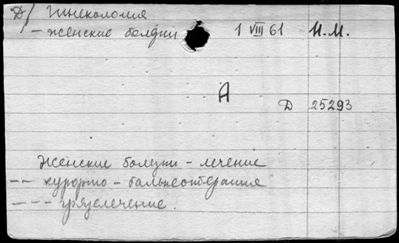 Д/ Гинекология
- женские болезни 1 VIII 61 И.М.
А
Д 25293
Женские болезни - лечение
-- курорто - бальнеотерапия
--- грязелечение.